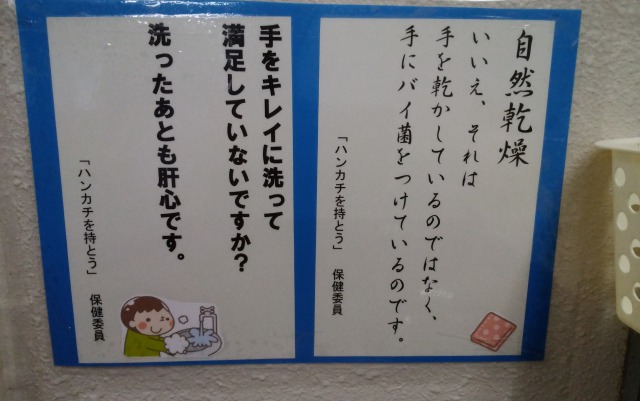 自然乾燥
いいえ、それは
手を乾かしているのではなく、
手にバイ菌をつけているのです。
「ハンカチを持とう」 保健委員
手をキレイに洗って
満足していないですか?
洗ったあとも肝心です。
「ハンカチを持とう」 保健委員